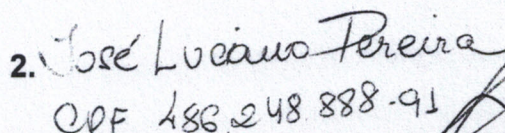 2. José Luciano Pereira
CPF 486.248.888-91